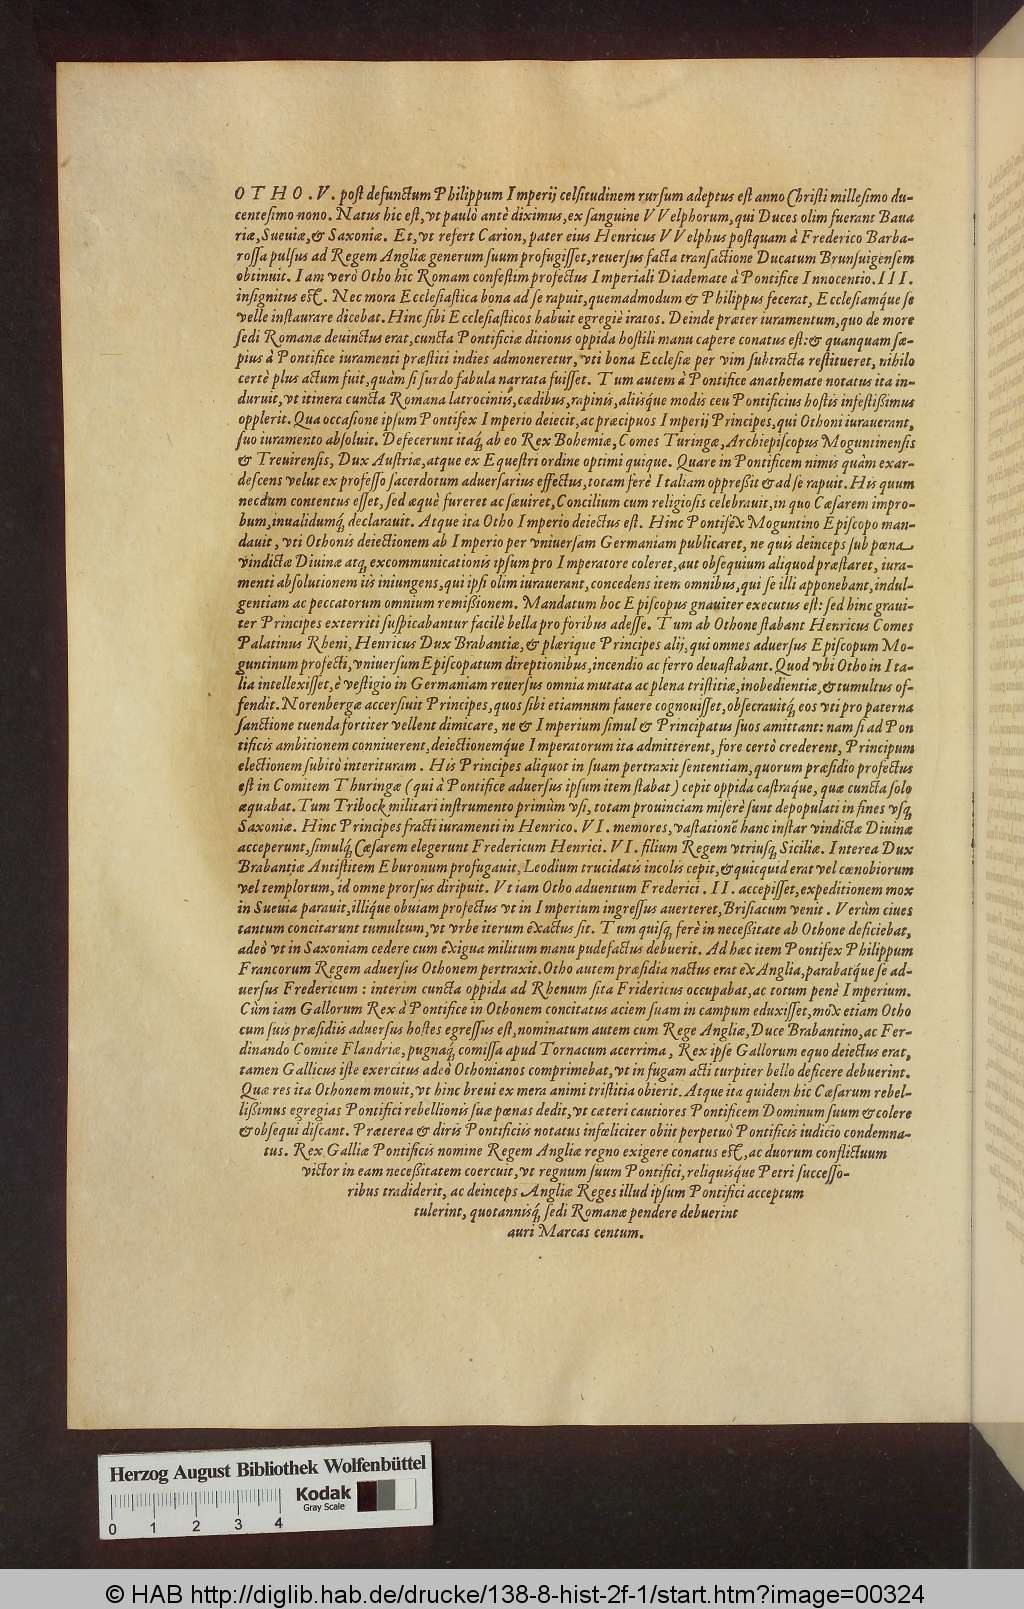 OTHO.V. post defunctum Philippum Imperij celsitudinem rursum adeptus est anno Christi millesimo du-
centesimo nono. Natus hic est, vt paulò antè diximus, ex sanguine VVelphorum, qui Duces olim fuerant Baua
riæ, Sueuiæ, & Saxoniæ. Et, vt refert Carion, pater eius Henricus VVelphus postquam à Frederico Barba-
rossa pulsus ad Regem Angliæ generum suum profugisset, reuersus facta transactione Ducatum Brunsuigensem
obtinuit. Iam verò Otho hic Romam confestim profectus Imperiali Diademate à Pontifice Innocentio.III.
insignitus est. Nec mora Ecclesiastica bona ad se rapuit, quemadmodum & Philippus fecerat, Ecclesiamq́ue se
velle instaurare dicebat. Hinc sibi Ecclesiasticos habuit egregiè iratos. Deinde præter iuramentum, quo de more
sedi Romanæ deuinctus erat, cuncta Pontificiæ ditionis oppida hostili manu capere conatus est: & quanquam sæ-
pius à Pontifice iuramenti præstiti indies admoneretur, vti bona Ecclesiæ per vim subtracta restitueret, nihilo
certè plus actum fuit, quàm si surdo fabula narrata fuisset. Tum autem à Pontifice anathemate notatus ita in-
duruit, vt itinera cuncta Romana latrociniis, cædibus, rapinis, aliisq́ue modis ceu Pontificius hostis infestißimus
opplerit. Qua occasione ipsum Pontifex Imperio deiecit, ac præcipuos Imperij Principes, qui Othoni iurauerant,
suo iuramento absoluit. Defecerunt itaq́, ab eo Rex Bohemiæ, Comes Turingæ, Archiepiscopus Moguntinensis
& Treuirensis, Dux Austriæ, atque ex Equestri ordine optimi quique. Quare in Pontificem nimis quàm exar-
descens velut ex professo sacerdotum aduersarius effectus, totam ferè Italiam oppreßit & ad se rapuit. His quum
necdum contentus esset, sed æquè fureret ac sæuiret, Concilium cum religiosis celebrauit, in quo Cæsarem impro-
bum, inualidumq́, declarauit. Atque ita Otho Imperio deiectus est. Hinc Pontifex Moguntino Episcopo man-
dauit, vti Othonis deiectionem ab Imperio per vniuersam Germaniam publicaret, ne quis deinceps sub pœna
vindictæ Diuinæ atq, excommunicationis ipsum pro Imperatore coleret, aut obsequium aliquod præstaret, iura-
menti absolutionem iis iniungens, qui ipsi olim iurauerant, concedens item omnibus, qui se illi apponebant, indul-
gentiam ac peccatorum omnium remißionem. Mandatum hoc Episcopus gnauiter executus est: sed hinc graui-
ter Principes exterriti suspicabantur facilè bella pro foribus adesse. Tum ab Othone stabant Henricus Comes
Palatinus Rheni, Henricus Dux Brabantiæ, & plærique Principes alij, qui omnes aduersus Episcopum Mo-
guntinum profecti, vniuersum Episcopatum direptionibus, incendio ac ferro deuastabant. Quod vbi Otho in Ita-
lia intellexisset, è vestigio in Germaniam reuersus omnia mutata ac plena tristitiæ, inobedientiæ, & tumultus of-
fendit. Norenbergæ accersiuit Principes, quos sibi etiamnum fauere cognouisset, obsecrauitq́, eos vti pro paterna
sanctione tuenda fortiter vellent dimicare, ne & Imperium simul & Principatus suos amittant: nam si ad Pon
tificis ambitionem conniuerent, deiectionemq́ue Imperatorum ita admitterent, fore certò crederent, Principum
electionem subitò interituram. His Principes aliquot in suam pertraxit sententiam, quorum præsidio profectus
est in Comitem Thuringæ (qui à Pontifice aduersus ipsum item stabat) cepit oppida castraque, quæ cuncta solo
æquabat. Tum Tribock militari instrumento primùm vsi, totam prouinciam miserè sunt depopulati in fines vsq́,
Saxoniæ. Hinc Principes fracti iuramenti in Henrico.VI. memores, vastationē hanc instar vindictæ Diuinæ
acceperunt, simulq́, Cæsarem elegerunt Fredericum Henrici.VI. filium Regem vtriusq́, Siciliæ. Interea Dux
Brabantiæ Antistitem Eburonum profugauit, Leodium trucidatis incolis cepit, & quicquid erat vel cœnobiorum
vel templorum, id omne prorsus diripuit. Vt iam Otho aduentum Frederici.II. accepisset, expeditionem mox
in Sueuia parauit, illiq́ue obuiam profectus vt in Imperium ingressus auerteret, Brisiacum venit. Verùm ciues
tantum concitarunt tumultum, vt vrbe iterum exactus sit. Tum quisq́, ferè in neceßitate ab Othone deficiebat,
adeò vt in Saxoniam cedere cum exigua militum manu pudefactus debuerit. Ad hæc item Pontifex Philippum
Francorum Regem aduersus Othonem pertraxit. Otho autem præsidia nactus erat ex Anglia, parabatq́ue se ad-
uersus Fredericum: interim cuncta oppida ad Rhenum sita Fridericus occupabat, ac totum penè Imperium.
Cùm iam Gallorum Rex à Pontifice in Othonem concitatus aciem suam in campum eduxisset, mox etiam Otho
cum suis præsidiis aduersus hostes egressus est, nominatum autem cum Rege Angliæ, Duce Brabantino, ac Fer-
dinando Comite Flandriæ, pugnaq́, comissa apud Tornacum acerrima, Rex ipse Gallorum equo deiectus erat,
tamen Gallicus iste exercitus adeò Othonianos comprimebat, vt in fugam acti turpiter bello deficere debuerint.
Quæ res ita Othonem mouit, vt hinc breui ex mera animi tristitia obierit. Atque ita quidem hic Cæsarum rebel-
lißimus egregias Pontifici rebellionis suæ pœnas dedit, vt cæteri cautiores Pontificem Dominum suum & colere
& obsequi discant. Præterea & diris Pontificiis notatus infœliciter obiit perpetuò Pontificis iudicio condemna-
tus. Rex Galliæ Pontificis nomine Regem Angliæ regno exigere conatus est, ac duorum conflictuum
victor in eam neceßitatem coercuit, vt regnum suum Pontifici, reliquisq́ue Petri successo-
ribus tradiderit, ac deinceps Angliæ Reges illud ipsum Pontifici acceptum
tulerint, quotannisq́, sedi Romanæ pendere debuerint
auri Marcas centum.
Herzog August Bibliothek Wolfenbüttel
Kodak
Gray Scale
0 1 2 3 4
© HAB http://diglib.hab.de/drucke/138-8-hist-2f-1/start.htm?image=00324